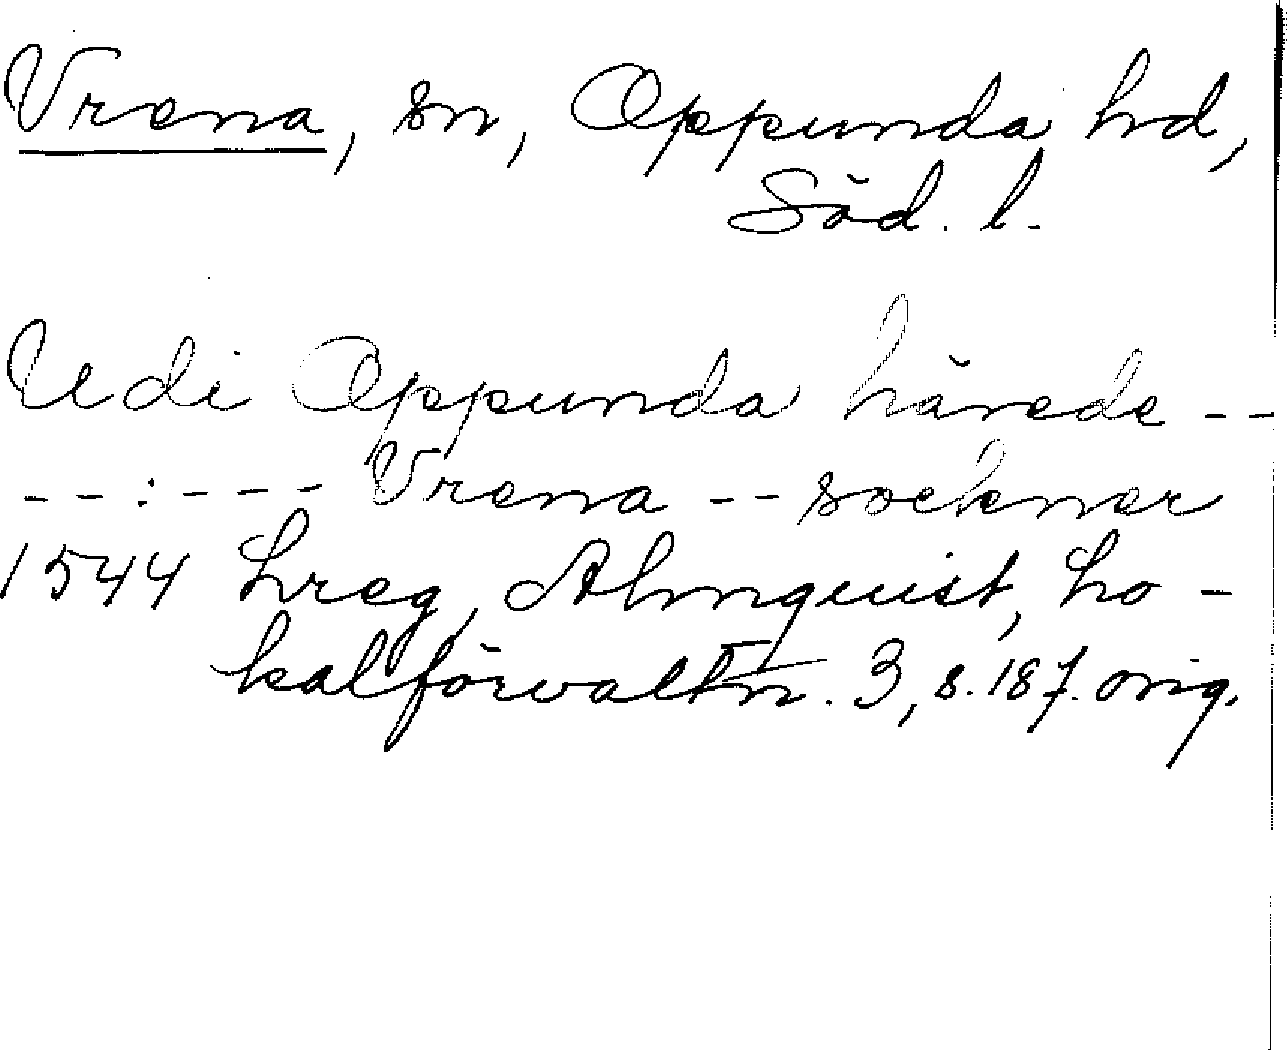 Vrena, sn, Oppunda hd,
Söd. l.
Udi Oppunda härede --
--:--- Vrena -- sockner
1544 Lreg, Almquist, Lo-
kalförvaltn. 3, s. 187. orig.